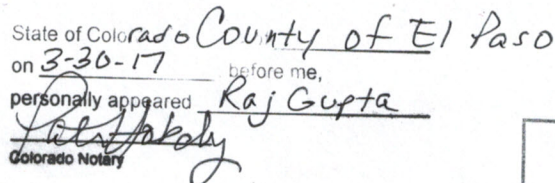 State of Colorado County of El Paso
on 3-30-17 before me,
personally appeared Raj Gupta
Colorado Notary